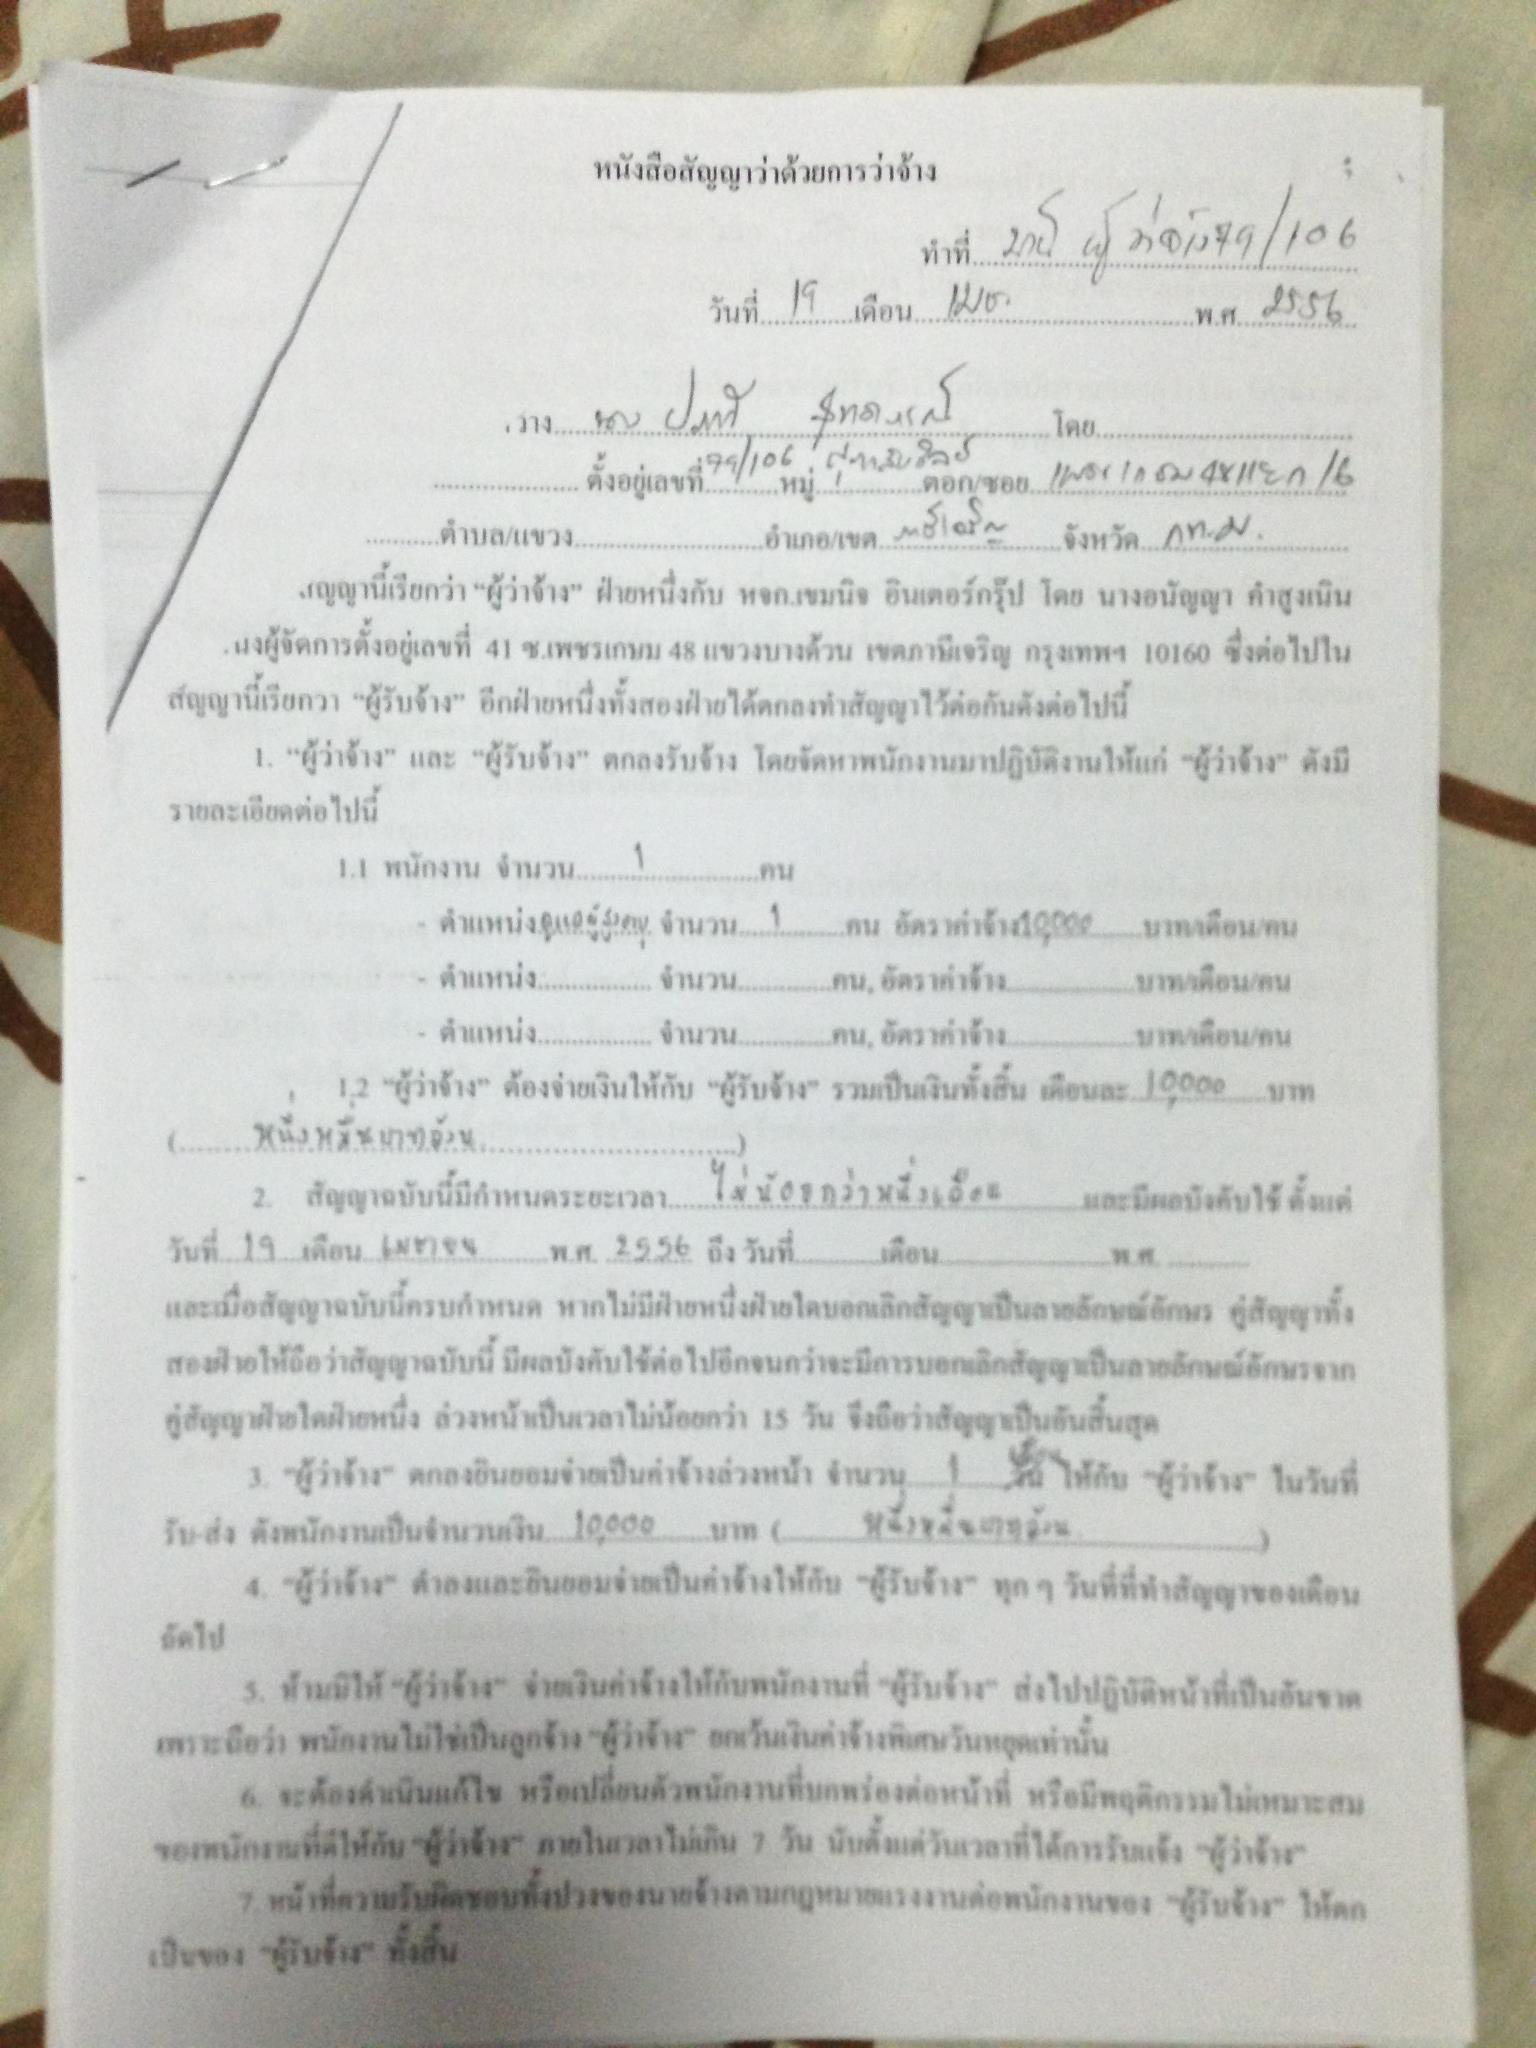 หนังสือสัญญาว่าด้วยการว่าจ้าง
ทำที่ บ้าน ผู้ว่าจ้าง 79/106
วันที่ 19 เดือน เมย. พ.ศ. 2556
โดย
ตั้งอยู่เลขที่ 79/106 หมู่ ตอก/ซอย เพชรเกษม 48 แยก 16
ตำบล/แขวง อำเภอ/เขต ภาษีเจริญ จังหวัด กท.ม.
ญญานี้เรียกว่า “ผู้ว่าจ้าง” ฝ่ายหนึ่งกับ หจก.เขมนิจ อินเตอร์กรุ๊ป โดย นางอนัญญา คำสูงเนิน
ผู้จัดการตั้งอยู่เลขที่ 41 ซ.เพชรเกษม 48 แขวงบางด้วน เขตภาษีเจริญ กรุงเทพฯ 10160 ซึ่งต่อไปใน
สัญญานี้เรียกวา “ผู้รับจ้าง” อีกฝ่ายหนึ่งทั้งสองฝ่ายได้ตกลงทำสัญญาไว้ต่อกันดังต่อไปนี้
1. “ผู้ว่าจ้าง” และ “ผู้รับจ้าง” ตกลงรับจ้าง โดยจัดหาพนักงานมาปฏิบัติงานให้แก่ “ผู้ว่าจ้าง” ดังมี
รายละเอียดต่อไปนี้
1.1 พนักงาน จำนวน 1 คน
- ตำแหน่ง ดูแลผู้สูงอายุ จำนวน 1 คน อัตราค่าจ้าง 10,000 บาท/เดือน/คน
- ตำแหน่ง จำนวน คน, อัตราค่าจ้าง บาท/เดือน/คน
- ตำแหน่ง จำนวน คน, อัตราค่าจ้าง บาท/เดือน/คน
1.2 “ผู้ว่าจ้าง” ต้องจ่ายเงินให้กับ “ผู้รับจ้าง” รวมเป็นเงินทั้งสิ้น เดือนละ 10,000 บาท
( หนึ่งหมื่นบาทถ้วน )
2. สัญญาฉบับนี้มีกำหนดระยะเวลา ไม่น้อยกว่าหนึ่งเดือน และมีผลบังคับใช้ ตั้งแต่
วันที่ 19 เดือน เมษายน พ.ศ. 2556 ถึง วันที่ เดือน พ.ศ.
และเมื่อสัญญาฉบับนี้ครบกำหนด หากไม่มีฝ่ายหนึ่งฝ่ายใดบอกเลิกสัญญาเป็นลายลักษณ์อักษร คู่สัญญาทั้ง
สองฝ่ายให้ถือว่าสัญญาฉบับนี้ มีผลบังคับใช้ต่อไปอีกจนกว่าจะมีการบอกเลิกสัญญาเป็นลายลักษณ์อักษรจาก
คู่สัญญาฝ่ายใดฝ่ายหนึ่ง ล่วงหน้าเป็นเวลาไม่น้อยกว่า 15 วัน จึงถือว่าสัญญาเป็นอันสิ้นสุด
3. “ผู้ว่าจ้าง” ตกลงยินยอมจ่ายเป็นค่าจ้างล่วงหน้า จำนวน 1 ให้กับ “ผู้ว่าจ้าง” ในวันที่
รับ-ส่ง ดังพนักงานเป็นจำนวนเงิน 10,000 บาท ( หนึ่งหมื่นบาทถ้วน )
4. “ผู้ว่าจ้าง” ตำลงและยินยอมจ่ายเป็นค่าจ้างให้กับ “ผู้รับจ้าง” ทุก ๆ วันที่ที่ทำสัญญาของเดือน
ถัดไป
5. ห้ามมิให้ “ผู้ว่าจ้าง” จ่ายเงินค่าจ้างให้กับพนักงานที่ “ผู้รับจ้าง” ส่งไปปฏิบัติหน้าที่เป็นอันขาด
เพราะถือว่า พนักงานไม่ใช่เป็นลูกจ้าง “ผู้ว่าจ้าง” ยกเว้นเงินค่าจ้างพิเศษวันหยุดเท่านั้น
6. จะต้องดำเนินแก้ไข หรือเปลี่ยนตัวพนักงานที่บกพร่องต่อหน้าที่ หรือมีพฤติกรรมไม่เหมาะสม
ของพนักงานที่ดีให้กับ “ผู้ว่าจ้าง” ภายในเวลาไม่เกิน 7 วัน นับตั้งแต่วันเวลาที่ได้การรับแจ้ง “ผู้ว่าจ้าง”
7. หน้าที่ความรับผิดชอบทั้งปวงของนายจ้างตามกฎหมายแรงงานต่อพนักงานของ “ผู้รับจ้าง” ให้ตก
เป็นของ “ผู้รับจ้าง” ทั้งสิ้น